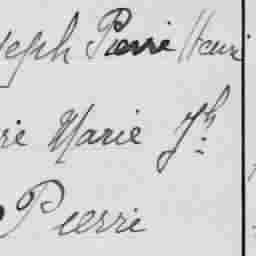 seph Pierre Henri
rie Marie Jh
Pierre